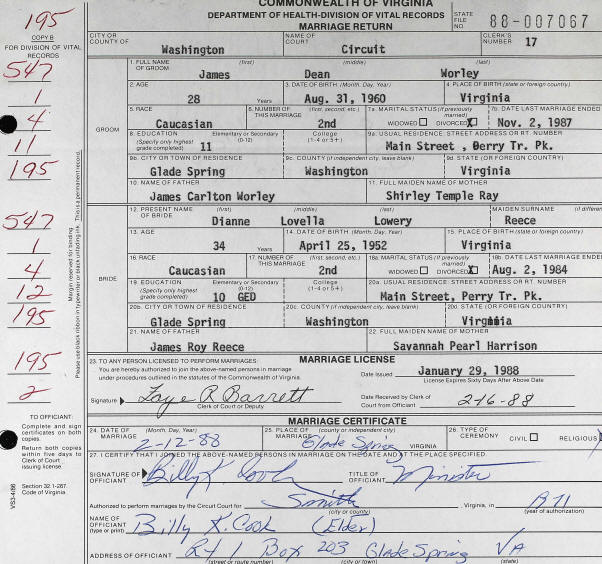 COMMONWEALTH OF VIRGINIA
DEPARTMENT OF HEALTH-DIVISION OF VITAL RECORDS
MARRIAGE RETURN
STATE FILE NO. 88-007067
195
COPY B
FOR DIVISION OF VITAL RECORDS
CITY OR COUNTY OF Washington NAME OF COURT Circuit CLERK'S NUMBER 17
547
1
4
11
195
547
1
4
12
195
195
2
Margin reserved for binding
Please use black ribbon in typewriter or black unfading ink. This is a permanent record.
GROOM
1. FULL NAME OF GROOM (first) (middle) (last)
James Dean Worley
2. AGE 3. DATE OF BIRTH (Month, Day, Year) 4. PLACE OF BIRTH (state or foreign country)
28 Years Aug. 31, 1960 Virginia
5. RACE 6. NUMBER OF THIS MARRIAGE (first, second, etc.) 7a. MARITAL STATUS (if previously married) 7b. DATE LAST MARRIAGE ENDED
Caucasian 2nd WIDOWED DIVORCED X Nov. 2, 1987
8. EDUCATION (Specify only highest grade completed) Elementary or Secondary (0-12) College (1-4 or 5+) 9a. USUAL RESIDENCE: STREET ADDRESS OR RT. NUMBER
11 Main Street , Perry Tr. Pk.
9b. CITY OR TOWN OF RESIDENCE 9c. COUNTY (if independent city, leave blank) 9d. STATE (OR FOREIGN COUNTRY)
Glade Spring Washington Virginia
10. NAME OF FATHER 11. FULL MAIDEN NAME OF MOTHER
James Carlton Worley Shirley Temple Ray
BRIDE
12. PRESENT NAME OF BRIDE (first) (middle) (last) MAIDEN SURNAME (if differen
Dianne Lovella Lowery Reece
13. AGE 14. DATE OF BIRTH (Month, Day, Year) 15. PLACE OF BIRTH (state or foreign country)
34 Years April 25, 1952 Virginia
16. RACE 17. NUMBER OF THIS MARRIAGE (first, second, etc.) 18a. MARITAL STATUS (if previously married) 18b. DATE LAST MARRIAGE ENDE
Caucasian 2nd WIDOWED DIVORCED X Aug. 2, 1984
19. EDUCATION (Specify only highest grade completed) Elementary or Secondary (0-12) College (1-4 or 5+) 20a. USUAL RESIDENCE: STREET ADDRESS OR RT. NUMBER
10 GED Main Street, Perry Tr. Pk.
20b. CITY OR TOWN OF RESIDENCE 20c. COUNTY (if independent city, leave blank) 20d. STATE (OR FOREIGN COUNTRY)
Glade Spring Washington Virginia
21. NAME OF FATHER 22. FULL MAIDEN NAME OF MOTHER
James Roy Reece Savannah Pearl Harrison
23. TO ANY PERSON LICENSED TO PERFORM MARRIAGES: MARRIAGE LICENSE
You are hereby authorized to join the above-named persons in marriage under procedures outlined in the statutes of the Commonwealth of Virginia.
Date Issued January 29, 1988
License Expires Sixty Days After Above Date
Signature Faye R Barrett
Clerk of Court or Deputy
Date Received by Clerk of Court from Officiant 2-16-88
TO OFFICIANT:
Complete and sign certificates on both copies.
Return both copies within five days to Clerk of Court issuing license.
Section 32.1-267, Code of Virginia.
VS3-4/86
MARRIAGE CERTIFICATE
24. DATE OF MARRIAGE (Month, Day, Year) 2-12-88 25. PLACE OF MARRIAGE (county or independent city) Glade Spring VIRGINIA 26. TYPE OF CEREMONY CIVIL RELIGIOUS
27. I CERTIFY THAT I JOINED THE ABOVE-NAMED PERSONS IN MARRIAGE ON THE DATE AND AT THE PLACE SPECIFIED.
SIGNATURE OF OFFICIANT Billy K Cook TITLE OF OFFICIANT Minister
Authorized to perform marriages by the Circuit Court for Smith , Virginia, in
(city or county) (year of authorization)
NAME OF OFFICIANT (type or print) Billy K. Cook (Elder)
ADDRESS OF OFFICIANT Rt 1 Box 203 Glade Spring VA
(street or route number) (city or town) (state)